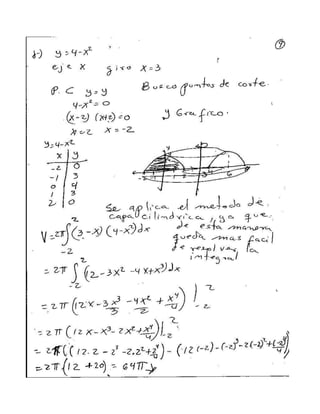 ⑦
j-) y = 4-x²
eje x giro x=3
P. C y=y Busco puntos de corte.
4-x²=0 y Grafico.
(x-2) (x+2)=0
x=2 x=-2
y=4-x²
x | y
-2 0
-1 3
0 4
1 3
2 0
4
2
-2
6
Se aplica el metodo de
capa cilindrica, ya que
de esta manera
queda mas facil
de resolver la
integral
V = 2π∫(3-x)(4-x²)dx
2
-2
= 2π ∫ (12-3x²-4x+x³)dx
2
-2
= 2π (12x - 3x³/3 - 4x²/2 + x⁴/4) | 2 -2
= 2π (12x - x³ - 2x² + x⁴/4) | 2 -2
= 2π((12.2 - 2³ - 2.2² + 2⁴/4) - (12(-2) - (-2)³ - 2(-2)² + (-2)⁴/4))
= 2π(12 + 20) = 64π